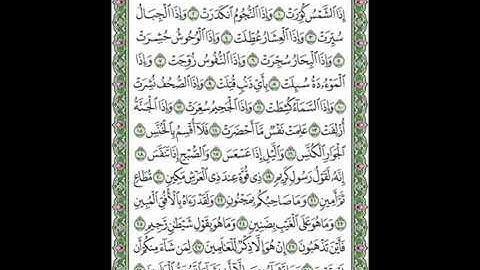 إِذَا ٱلشَّمۡسُ كُوِّرَتۡ ١ وَإِذَا ٱلنُّجُومُ ٱنكَدَرَتۡ ٢ وَإِذَا ٱلۡجِبَالُ
سُيِّرَتۡ ٣ وَإِذَا ٱلۡعِشَارُ عُطِّلَتۡ ٤ وَإِذَا ٱلۡوُحُوشُ حُشِرَتۡ
٥ وَإِذَا ٱلۡبِحَارُ سُجِّرَتۡ ٦ وَإِذَا ٱلنُّفُوسُ زُوِّجَتۡ ٧ وَإِذَا
ٱلۡمَوۡءُۥدَةُ سُئِلَتۡ ٨ بِأَيِّ ذَنۢبٖ قُتِلَتۡ ٩ وَإِذَا ٱلصُّحُفُ نُشِرَتۡ
١٠ وَإِذَا ٱلسَّمَآءُ كُشِطَتۡ ١١ وَإِذَا ٱلۡجَحِيمُ سُعِّرَتۡ ١٢ وَإِذَا ٱلۡجَنَّةُ
أُزۡلِفَتۡ ١٣ عَلِمَتۡ نَفۡسٞ مَّآ أَحۡضَرَتۡ ١٤ فَلَآ أُقۡسِمُ بِٱلۡخُنَّسِ ١٥
ٱلۡجَوَارِ ٱلۡكُنَّسِ ١٦ وَٱلَّيۡلِ إِذَا عَسۡعَسَ ١٧ وَٱلصُّبۡحِ إِذَا تَنَفَّسَ ١٨
إِنَّهُۥ لَقَوۡلُ رَسُولٖ كَرِيمٖ ١٩ ذِي قُوَّةٍ عِندَ ذِي ٱلۡعَرۡشِ مَكِينٖ ٢٠ مُّطَاعٖ
ثَمَّ أَمِينٖ ٢١ وَمَا صَاحِبُكُم بِمَجۡنُونٖ ٢٢ وَلَقَدۡ رَءَاهُ بِٱلۡأُفُقِ ٱلۡمُبِينِ
٢٣ وَمَا هُوَ عَلَى ٱلۡغَيۡبِ بِضَنِينٖ ٢٤ وَمَا هُوَ بِقَوۡلِ شَيۡطَٰنٖ رَّجِيمٖ ٢٥
فَأَيۡنَ تَذۡهَبُونَ ٢٦ إِنۡ هُوَ إِلَّا ذِكۡرٞ لِّلۡعَٰلَمِينَ ٢٧ لِمَن شَآءَ مِنكُمۡ أَن